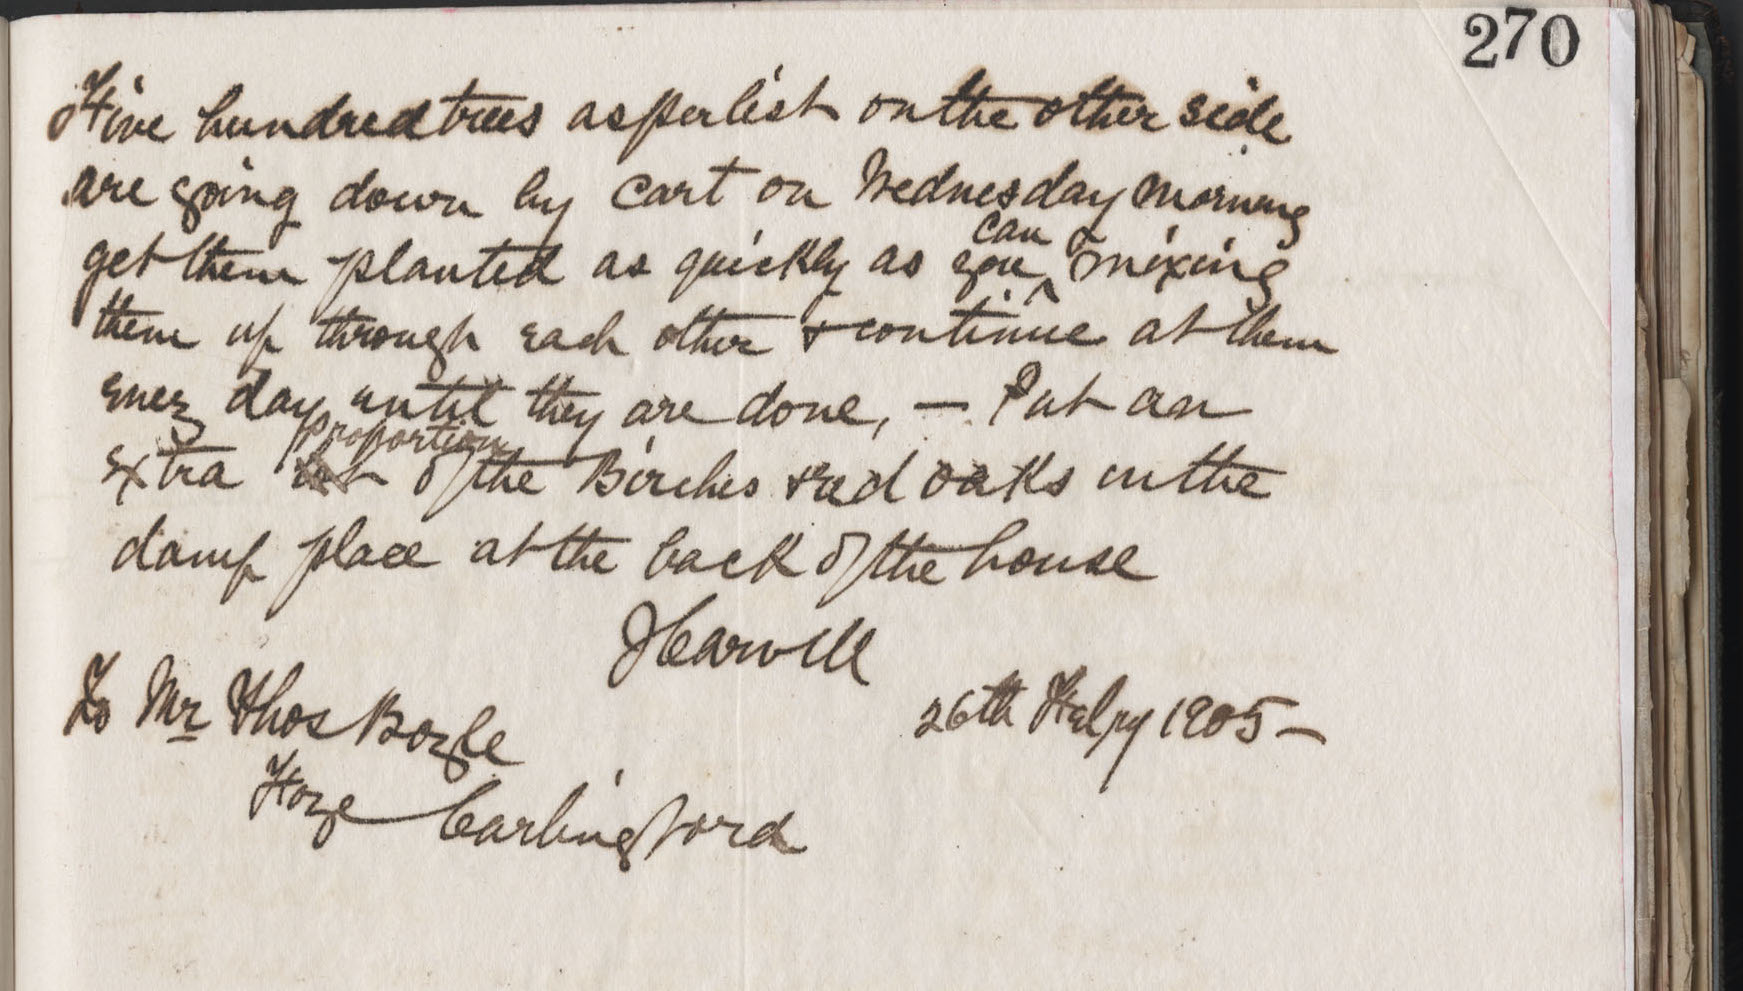 270
Five hundred trees as per list on the other side
are going down by cart on Wednesday morning
get them planted as quickly as you can & mixing
them up through each other & continue at them
every day until they are done, — Put an
extra lot proportion of the Birches & red oaks in the
damp place at the back of the house
J Carvill
To Mr Thos Boyle
26th Febry 1905 —
Foye Carlingford